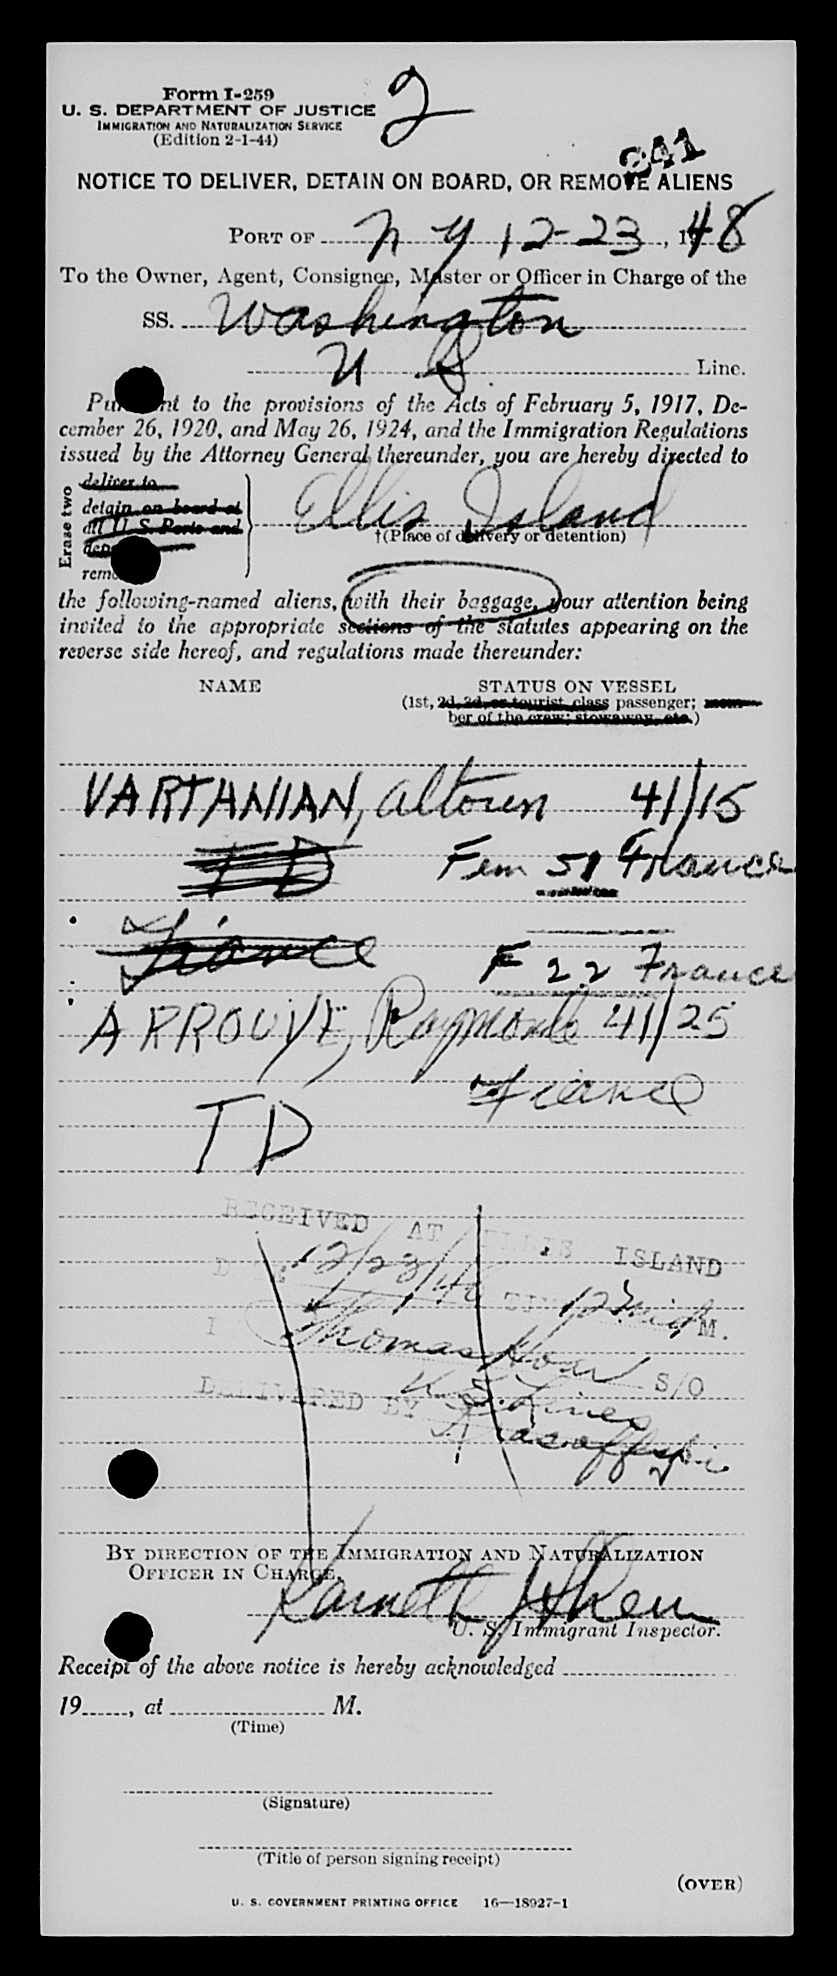 Form I-259
2
U. S. DEPARTMENT OF JUSTICE
IMMIGRATION AND NATURALIZATION SERVICE
(Edition 2-1-44)
241
NOTICE TO DELIVER, DETAIN ON BOARD, OR REMOVE ALIENS
PORT OF N Y 12-23, 1948
To the Owner, Agent, Consignee, Master or Officer in Charge of the
SS. Washington
U S Line.
Pursuant to the provisions of the Acts of February 5, 1917, De-
cember 26, 1920, and May 26, 1924, and the Immigration Regulations
issued by the Attorney General thereunder, you are hereby directed to
Erase two
deliver to
detain on board at
all U. S. Ports and
remove
Ellis Island
†(Place of delivery or detention)
the following-named aliens, with their baggage, your attention being
invited to the appropriate sections of the statutes appearing on the
reverse side hereof, and regulations made thereunder:
NAME STATUS ON VESSEL
(1st, 2d, 3d, or tourist class passenger; mem-
ber of the crew; stowaway, etc.)
VARTANIAN, Altoun 41/15
TD Fem 51 France
Fiance
F 22 France
APROUVE, Raymonde 41/25
Fiance
TD
RECEIVED AT ELLIS ISLAND
12/23/48 12 Mid M.
Thomas S/O
DELIVERED BY U.S. Lines
BY DIRECTION OF THE IMMIGRATION AND NATURALIZATION
OFFICER IN CHARGE.
U. S. Immigrant Inspector.
Receipt of the above notice is hereby acknowledged
19......, at M.
(Time)
(Signature)
(Title of person signing receipt)
(OVER)
U. S. GOVERNMENT PRINTING OFFICE 16—18927-1